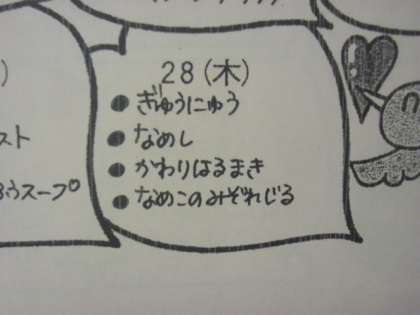 28(木)
ぎゅうにゅう
なめし
かわりはるまき
なめこのみぞれじる
スト
スープ